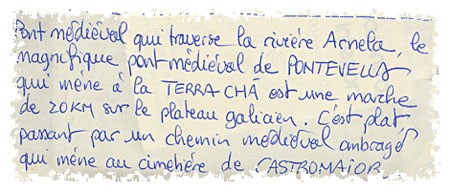 Pont médiéval qui traverse la rivière Arnela, le
magnifique pont médiéval de PONTEVELLA
qui mène à la TERRA CHÁ est une marche
de 20KM sur le plateau galicien. C'est plat,
passant par un chemin médiéval ombragé
qui mène au cimetière de CASTROMAIOR.